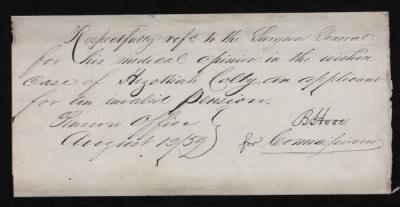 Respectfully refd to the Surgeon General
for his medical opinion in the within
case of Hezekiah Colby, an applicant
for an invalid pension.
Pension Office
August 19/59
for Commissioner